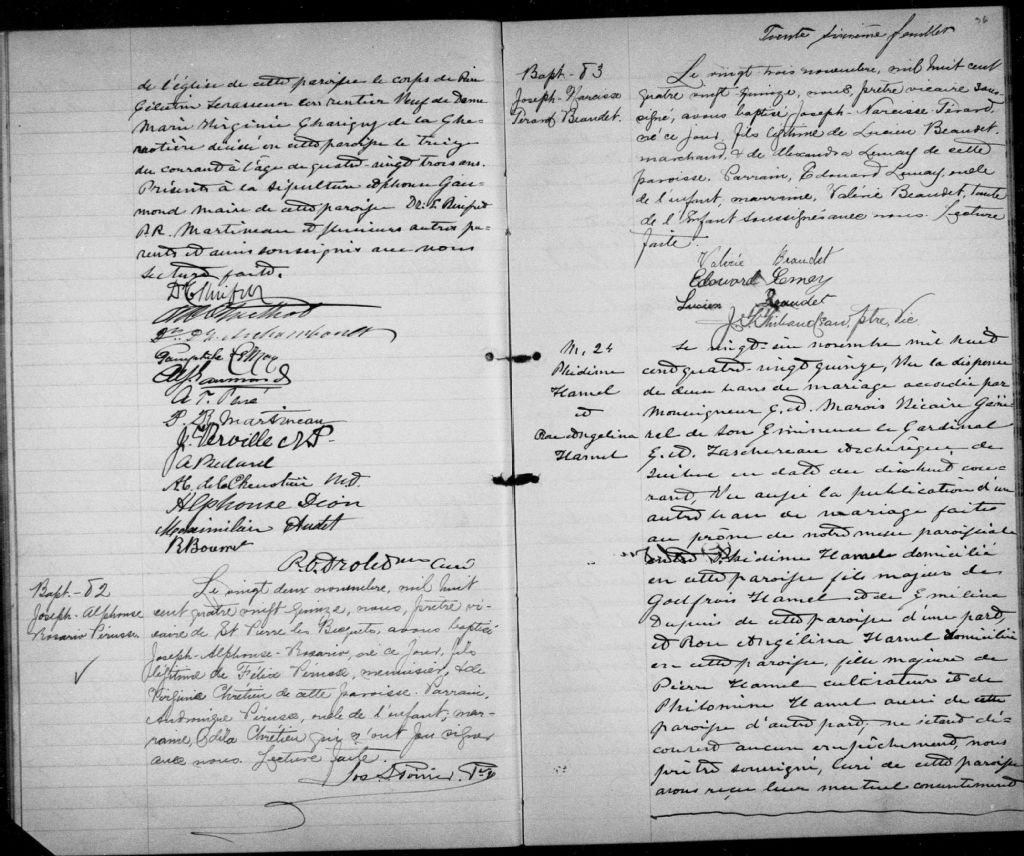 de l'église de cette paroisse le corps de
Célestin Levasseur rentier Veuf de Dame
Marie Virginie Charigny de la Che-
vrotière décédé en cette paroisse le treize
du courant à l'âge de quatre-vingt trois ans.
Présents à la sépulture Alphonse Gau-
mond maire de cette paroisse Dr.
P.R. Martineau et plusieurs autres pa-
rents et amis soussignés avec nous
Lecture faite.
Pamphile Lemay
A. T. Paré
P. B. Martineau
J. Verville N.P.
A. Bédard
A.C. de la Chevrotière M.D.
Alphonse Dion
Maximilien Audet
P.O. Drolet Curé
Bapt - 82
Joseph-Alphonse
Rosario Pérusse
Le vingt deux novembre, mil huit
cent quatre vingt quinze, nous, prêtre vi-
caire de St Pierre les Becquets, avons baptisé
Joseph-Alphonse-Rosario, né ce jour, fils
légitime de Félix Pérusse, menuisier, & de
Virginie Chrétien de cette paroisse. Parrain,
Andronique Pérusse, oncle de l'enfant, mar-
raine, Odila Chrétien qui n'ont pu signer
avec nous. Lecture faite.
Jos. Poirier Ptre
36
Trente sixième feuillet
Bapt - 83
Joseph-Narcisse
Férand Beaudet.
Le vingt trois novembre, mil huit cent
quatre vingt quinze, nous, prêtre vicaire sous-
signé, avons baptisé Joseph-Narcisse-Férand,
né ce jour, fils légitime de Lucien Beaudet,
marchand, & de Alexandra Lemay de cette
paroisse. Parrain, Edouard Lemay, oncle
de l'enfant, marraine, Valérie Beaudet, tante
de l'Enfant soussignés avec nous. Lecture
faite.
Valérie Beaudet
Edouard Lemay
Lucien Beaudet
J. Thibaudeau, ptre, Vic
M. 24
Phidime
Hamel
et
Rose Angélina
Hamel
Le vingt-six novembre mil huit
cent quatre-vingt quinze, Vu la dispense
de deux bans de mariage accordée par
Monseigneur C. A. Marois Vicaire Géné-
ral de son Eminence le Cardinal
E. A. Taschereau Archevêque de
Québec en date du dix huit cou-
rant, Vu aussi la publication d'un
autre ban de mariage faite
au prône de notre messe paroissiale
entre Phidime Hamel domicilié
en cette paroisse fils majeur de
Godfroid Hamel & de Emilina
Dupuis de cette paroisse d'une part,
et Rose Angélina Hamel domiciliée
en cette paroisse, fille majeure de
Pierre Hamel cultivateur et de
Philomène Hamel aussi de cette
paroisse d'autre part, ne s'étant dé-
couvert aucun empêchement, nous
prêtre soussigné, curé de cette paroisse
avons reçu leur mutuel consentement